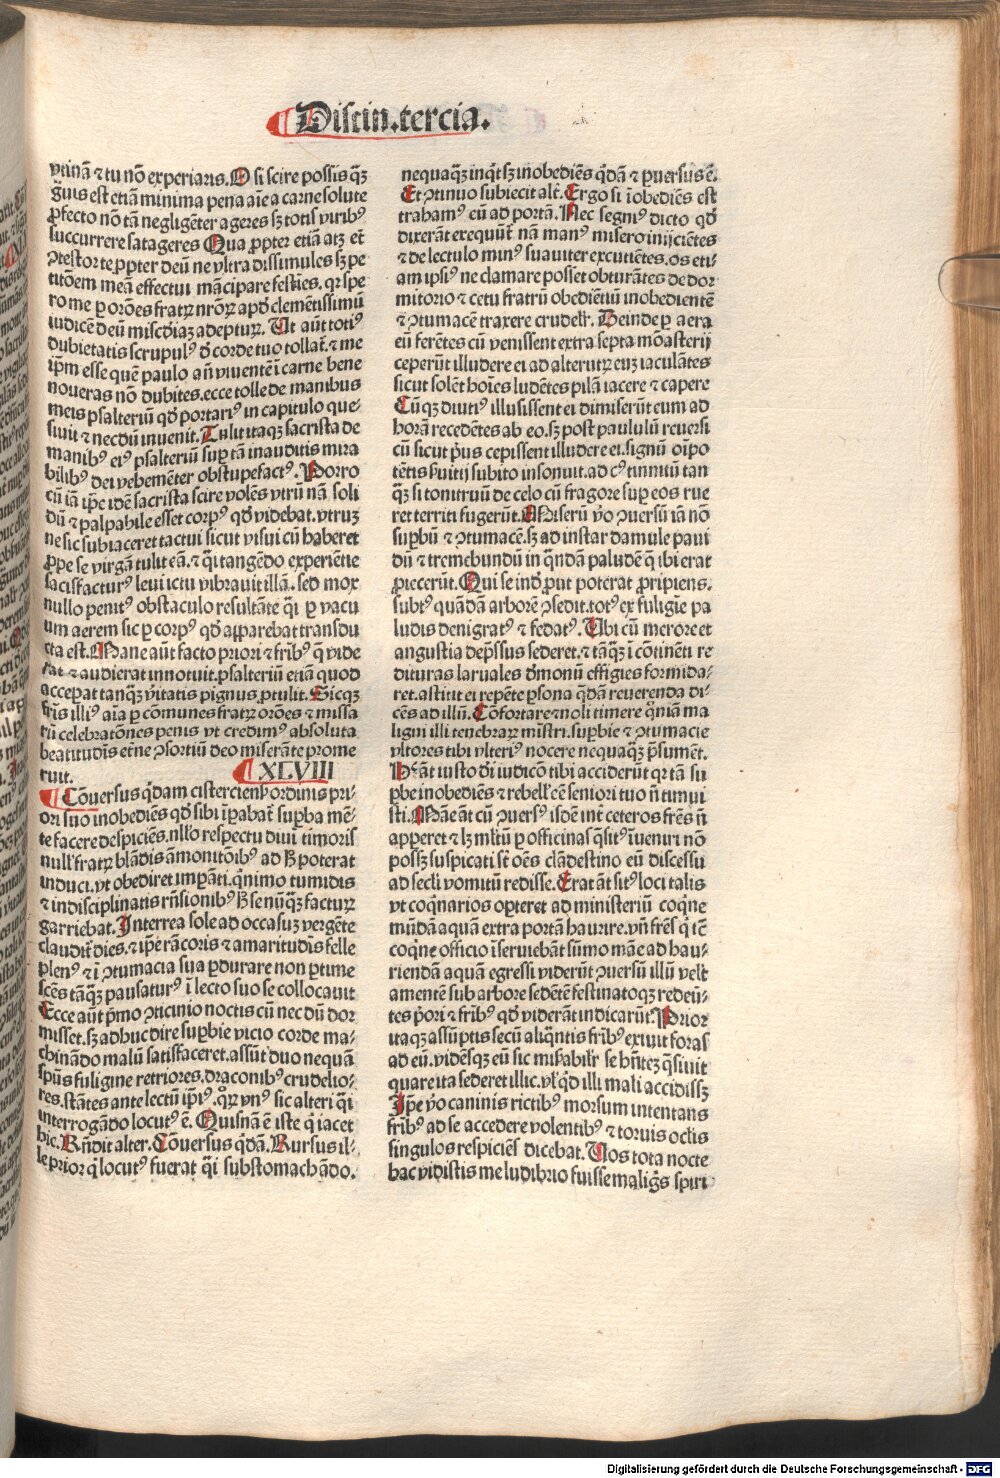 Distin.tercia.
vtinã ⁊ tu nõ experiaris. O si scire possis q̃ꝫ
g̃uis est etiã minima pena aĩe a carne solute
ꝓfecto nõ tã negligẽter ageres sꝫ totis viribꝰ
succurrere satageres Qua ꝓpter etiã atꝫ et̃
ꝯtestor te ꝓpter deũ ne vltra dissimules sꝫ pe
titõem meã effectui mãcipare festies. qꝛ spe
ro me ꝑ orões fratrꝝ nrõꝝ apď clementissimũ
iudicẽ deũ miscďiaꝫ adepturꝝ. Ut aũt totiꝰ
dubietatis scrupulꝰ ď corde tuo tollat̃. ⁊ me
ip̃m esse quẽ paulo añ viuentẽ ĩ carne bene
noueras nõ dubites. ecce tolle de manibus
meis psalteriũ qď portariꝰ in capitulo que-
siuit ⁊ necdũ inuenit. Tulit itaqꝫ sacrista de
manibꝰ eiꝰ psalteriũ suꝑ tã inauditis mira
bilibꝰ dei vehemẽter obstupefactꝰ. Porro
cũ iã ip̃e idẽ sacrista scire volẽs vtrũ nã soli
dũ ⁊ palpabile esset corpꝰ qď videbat. vtruꝫ
ne sic subiaceret tactui sicut visui cũ haberet
ꝓpe se virgã tulit eã. ⁊ q̃i tangẽdo experiẽtie
satisfacturꝰ leui ictu vibrauit illã. sed mox
nullo penitꝰ obstaculo resultãte q̃i ꝑ vacu
um aerem sic ꝑ corpꝰ qď apparebat transdu
cta est. Mane aũt facto priori ⁊ frĩbꝰ q̃ vide
rat ⁊ audierat innotuit. psalteriũ etiã quod
acceꝑat tanq̃ꝫ v̾itatis pignus ꝓtulit. Sicqꝫ
fr̃is illiꝰ aĩa ꝑ cõmunes fratrꝝ orões ⁊ missa
rũ celebratõnes penis vt credimꝰ absoluta
beatitudĩs et̃ne ꝯsortiũ deo miserãte prome
ruit.
XLVIII
Cõuersus q̃dam cisterciensꝭ ordinis pri-
ori suo inobediẽs qď sibi ĩꝑabat̃ suꝑba mẽ-
te facere despiciẽs. nll̃o respectu diuĩ timoris
null̃ fratrꝝ blãdis ãmonitõibꝰ ad ɦ poterat
induci. vt obediret imꝑãti. q̃nimo tumidis
⁊ indisciplinatis rñsionibꝰ ɦ se nũq̃ꝫ facturꝝ
garriebat. Interrea sole ad occasuꝫ vergẽte
claudit̃ dies. ⁊ ip̃e rãcoris ⁊ amaritudĩs felle
plenꝰ ⁊ ĩ ꝯtumacia sua ꝑdurare non ꝑtime
scẽs tãq̃ꝫ pausaturꝰ ĩ lecto suo se collocauit
Ecce aũt p̃mo ꝯticinio noctis cũ nec dũ dor
misset. sꝫ adhuc dire suꝑbie vicio corde ma-
chinãdo malũ satisfaceret. assũt duo nequã
sp̃us fuligine retriores. draconibꝰ crudelio-
res. stãtes ante lectũ ip̃iꝰ. q̊ꝝ vnꝰ sic alteri q̃i
interrogãdo locutꝰ ẽ. Quisnã ẽ iste q̃ iacet
hic. Rñdit alter. Cõuersus q̃dã. Rursus il-
le prior q̃ locutꝰ fuerat q̃i substomachãdo.
nequaq̃ꝫ inq̃t sꝫ inobediẽs q̃dã ⁊ ꝑuersus ẽ.
Et ꝯtinuo subiecit alt̃. Ergo si ĩobediẽs est
trahamꝰ eũ ad portã. Nec segniꝰ dicto qď
dixerãt exequũt̃ nã manꝰ misero inijciẽtes
⁊ de lectulo minꝰ suauiter excutiẽtes. os eti-
am ipsiꝰ ne clamare posset obturãtes de dor
mitorio ⁊ cetu fratrũ obediẽtiũ inobedientẽ
⁊ ꝯtumacẽ traxere crudelr̃. Deinde ꝑ aera
eũ ferẽtes cũ venissent extra septa mõasterij
ceperũt illudere ei ad alterutrꝝ euꝫ iaculãtes
sicut solẽt hoĩes ludẽtes pilã iacere ⁊ capere
Cũqꝫ diutiꝰ illusissent ei dimiserũt eum ad
horã recedẽtes ab eo. sꝫ post paululũ reuersi
cũ sicut p̃us cepissent illudere ei. signũ oĩpo
tẽtis s̃uitij subito insonuit. ad cꝰ tinnitũ tan
q̃ꝫ si tonitruũ de celo cũ fragore suꝑ eos rue
ret territi fugerũt. Miserũ v̾o ꝯuersũ iã nõ
suꝑbũ ⁊ ꝯtumacẽ. sꝫ ad instar damule paui
dũ ⁊ tremebundũ in q̃ndã paludẽ q̃ ibi erat
ꝓiecerũt. Qui se inď ꝓut poterat ꝓripiens.
subtꝰ quãdã arborẽ ꝯsedit. totꝰ ex fuligĩe pa
ludis denigratꝰ ⁊ fedatꝰ. Ubi cũ merore et
angustia dep̃ssus sederet. ⁊ tãq̃ꝫ ĩ cõtinẽti re
dituras laruales ďmonũ effigies formida-
ret. astitit ei repẽte ꝑsona q̃dã reuerenda di-
cẽs ad illũ. Cõfortare ⁊ noli timere q̃niã ma
ligni illi tenebrarꝝ mĩstri. suꝑbie ⁊ ꝯtumacie
vltores tibi vlteriꝰ nocere nequaq̃ꝫ p̃sumẽt.
Hec aũt iusto di iudicõ tibi acciderũt qꝛ tã su
ꝑbe inobediẽs ⁊ rebell̃ cẽ seniori tuo ñ timui
sti. Mãe aũt cũ ꝯuersꝰ isdẽ int̃ ceteros frẽs ñ
apperet ⁊ lꝫ ml̃tũ ꝑ officinas q̃sitꝰ ĩueniri nõ
possꝫ suspicati st̃ oẽs clãdestino eũ discessu
ad secl̃i vomitũ redisse. Erat aũt sitꝰ loci talis
vt coq̃narios oꝑteret ad ministeriũ coq̃ne
mũdã aquã extra portã haurire. vñ frẽs q̃ tc̃
coq̃ne officio ĩseruiebãt sũmo mãe ad hau-
riendã aquã egressi viderũt ꝯuersũ illũ velt̃
amentẽ sub arbore sedẽtẽ festinatoqꝫ redeũ-
tes p̃ori ⁊ frĩbꝰ qď viderãt indicarũt. Prior
itaqꝫ assũptis secũ aliq̃ntis frĩbꝰ exiuit foras
ad eũ. vidẽsqꝫ eũ sic mis̃abilr̃ se hñteꝫ q̃siuit
quare ita sederet illic. vl̃ q̃d illi mali accidissꝫ
Ip̃e v̾o caninis rictibꝰ morsum intentans
frĩbꝰ ad se accedere volentibꝰ ⁊ toruis ocl̃is
singulos respiciẽs dicebat. Uos tota nocte
hac vidistis me ludibrio fuisse malig̃s spiri
Digitalisierung gefördert durch die Deutsche Forschungsgemeinschaft - DFG